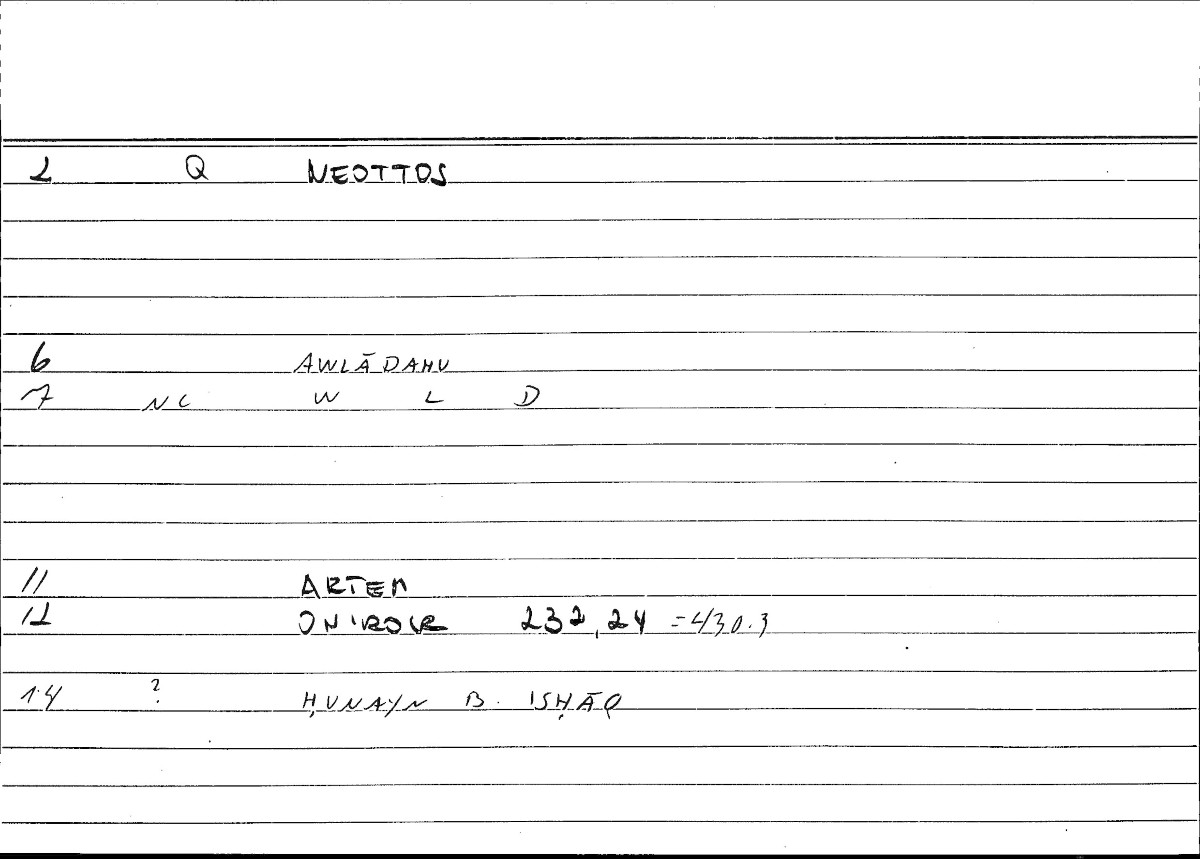 2 Q NEOTTOS
6 AWLĀDAHU
7 NC W L D
11 ARTEM
12 ONIROCR 232,24 =430.3
14 ? ḤUNAYN B. ISḤĀQ